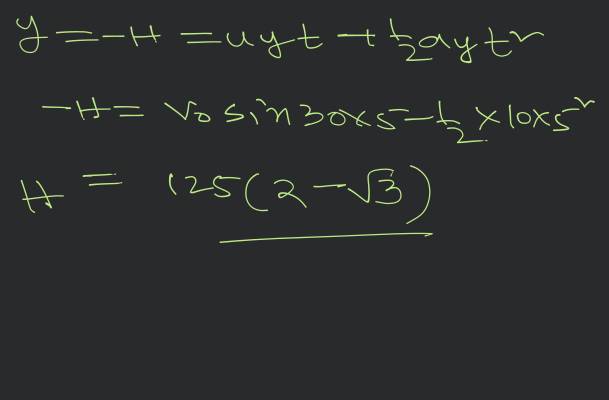 y = -H = uyt + 1/2 ayt²
-H = V0 sin30x5 - 1/2 x 10x5²
H = 125(2-√3)